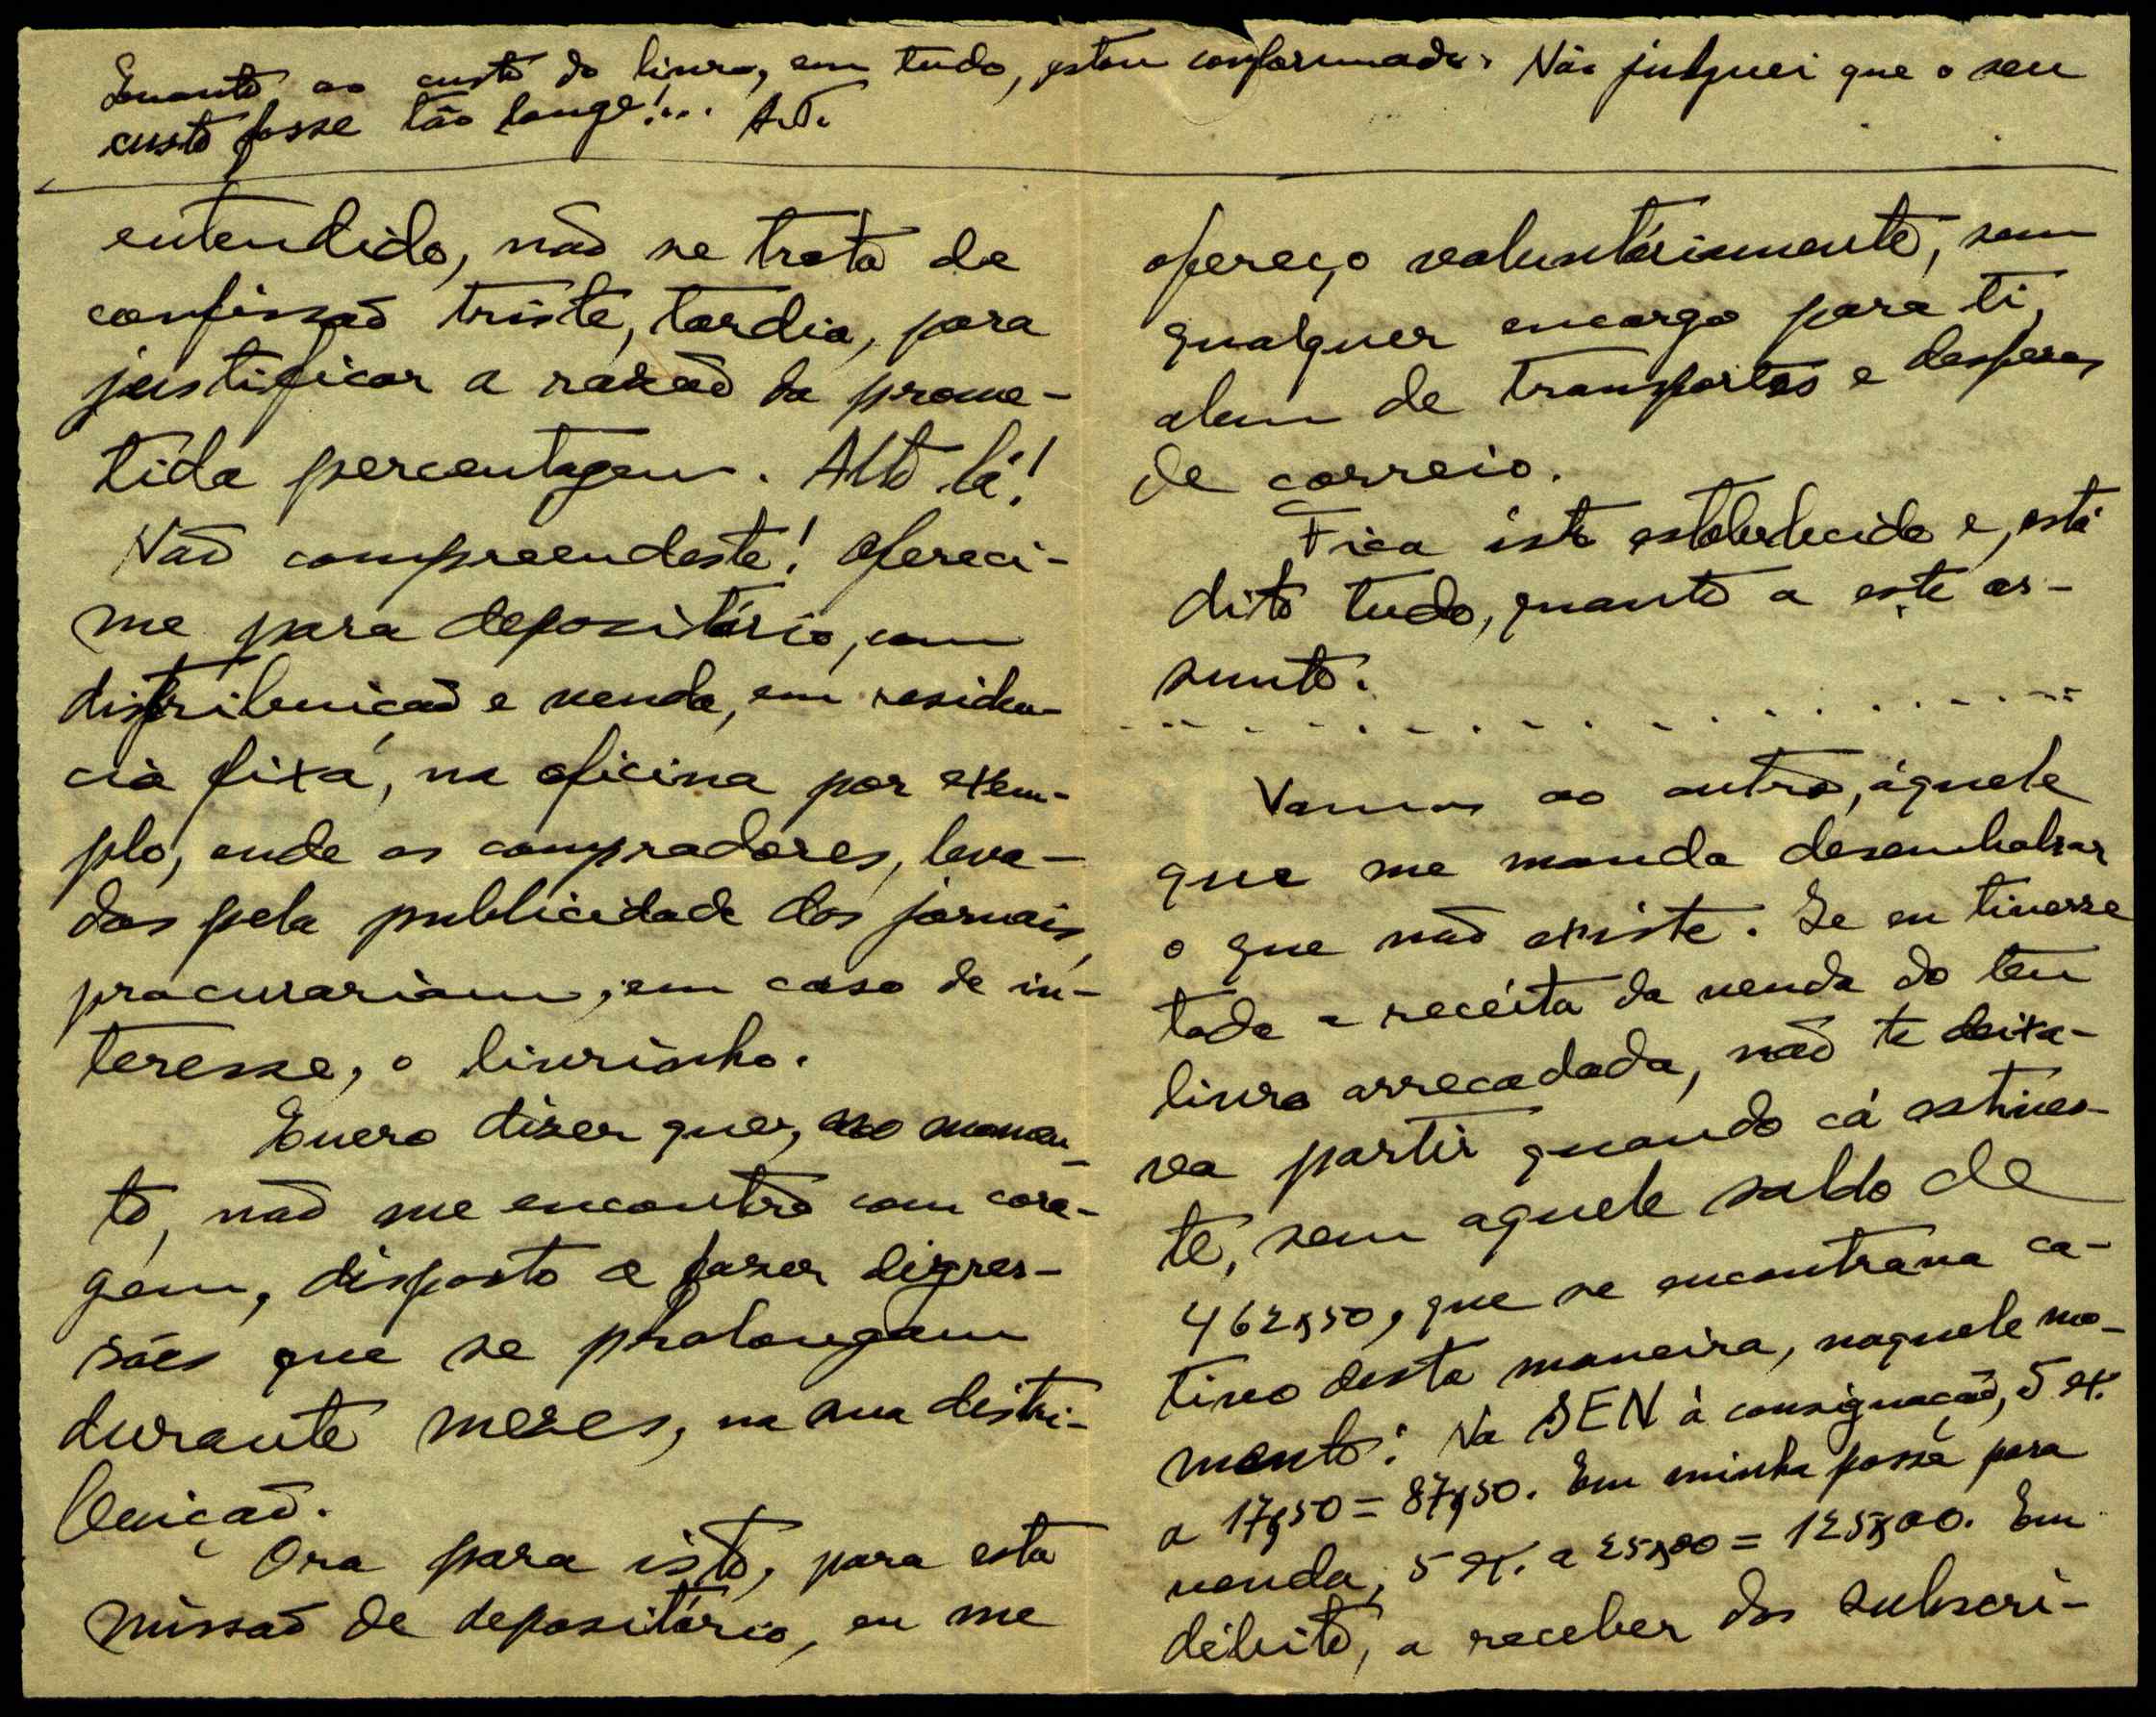 Quanto ao custo do livro, em tudo, estou conformado. Não julguei que o seu
custo fosse tão longe!... A.T.
entendido, não se trata de
confissão triste, tardia, para
justificar a razão da prome-
tida percentagem. Alto lá!
Não compreendeste! Ofereci-
me para depositário, com
distribuição e venda, em residen-
cia fixa, na oficina por exem-
plo, onde os compradores, leva-
dos pela publicidade dos jornais,
procurariam, em caso de in-
teresse, o livrinho.
Quero dizer que, no momen-
to, não me encontro com cora-
gem, disposto a fazer digres-
sões que se prolongam
durante meses, na sua distri-
buição.
Ora para isto, para esta
missão de depositário, eu me
ofereço voluntáriamente, sem
qualquer encargo para ti,
alem de transportes e despesas
de correio.
Fica isto estabelecido e, está
dito tudo, quanto a este as-
sunto.
. . . . . . . . . . . . . . . . . .
Vamos ao outro, áquele
que me manda desembolsar
o que não existe. Se eu tivesse
toda a receita da venda do teu
livro arrecadada, não te deixa-
va partir quando cá estives-
te, sem aquele saldo de
462$50, que se encontrava ca-
tivo desta maneira, naquele mo-
mento: Na SEN à consignação, 5 ex.
a 17$50 = 87$50. Em minha posse para
venda, 5 ex. a 25$00 = 125$00. Em
débito, a receber dos subscri-